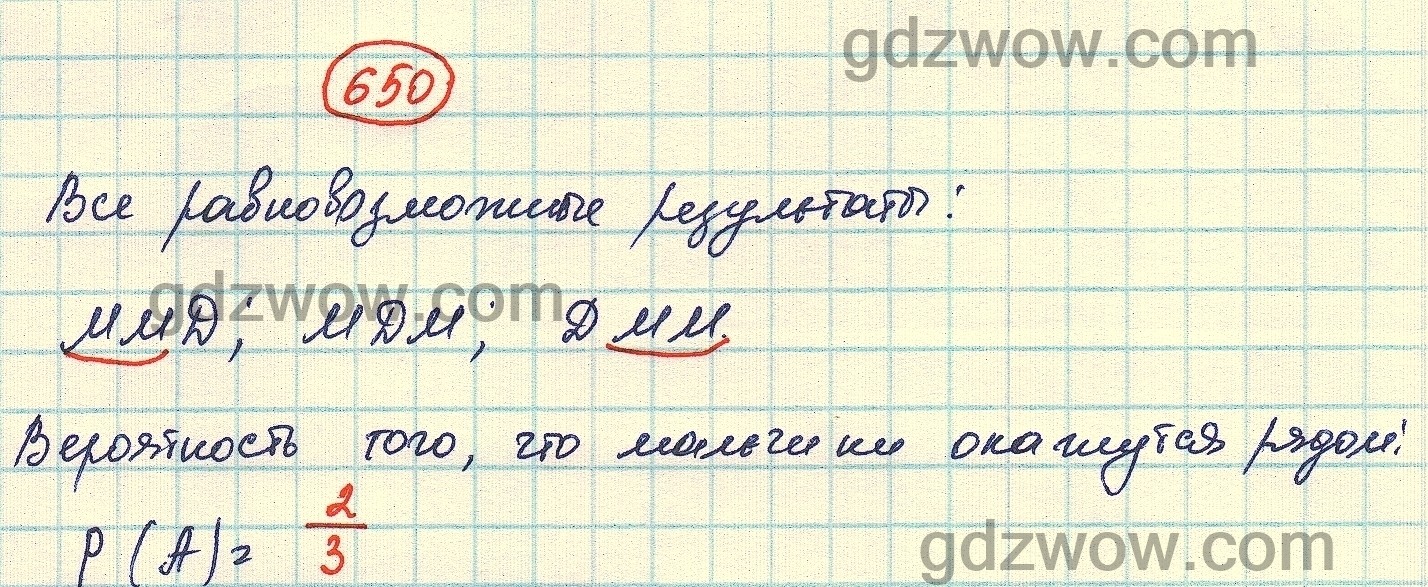 gdzwow.com
650
Все равновозможные результаты:
gdzwow.com
ММД; МДМ; ДММ.
Вероятность того, что мальчики окажутся рядом:
P(A)= 2/3
gdzwow.com